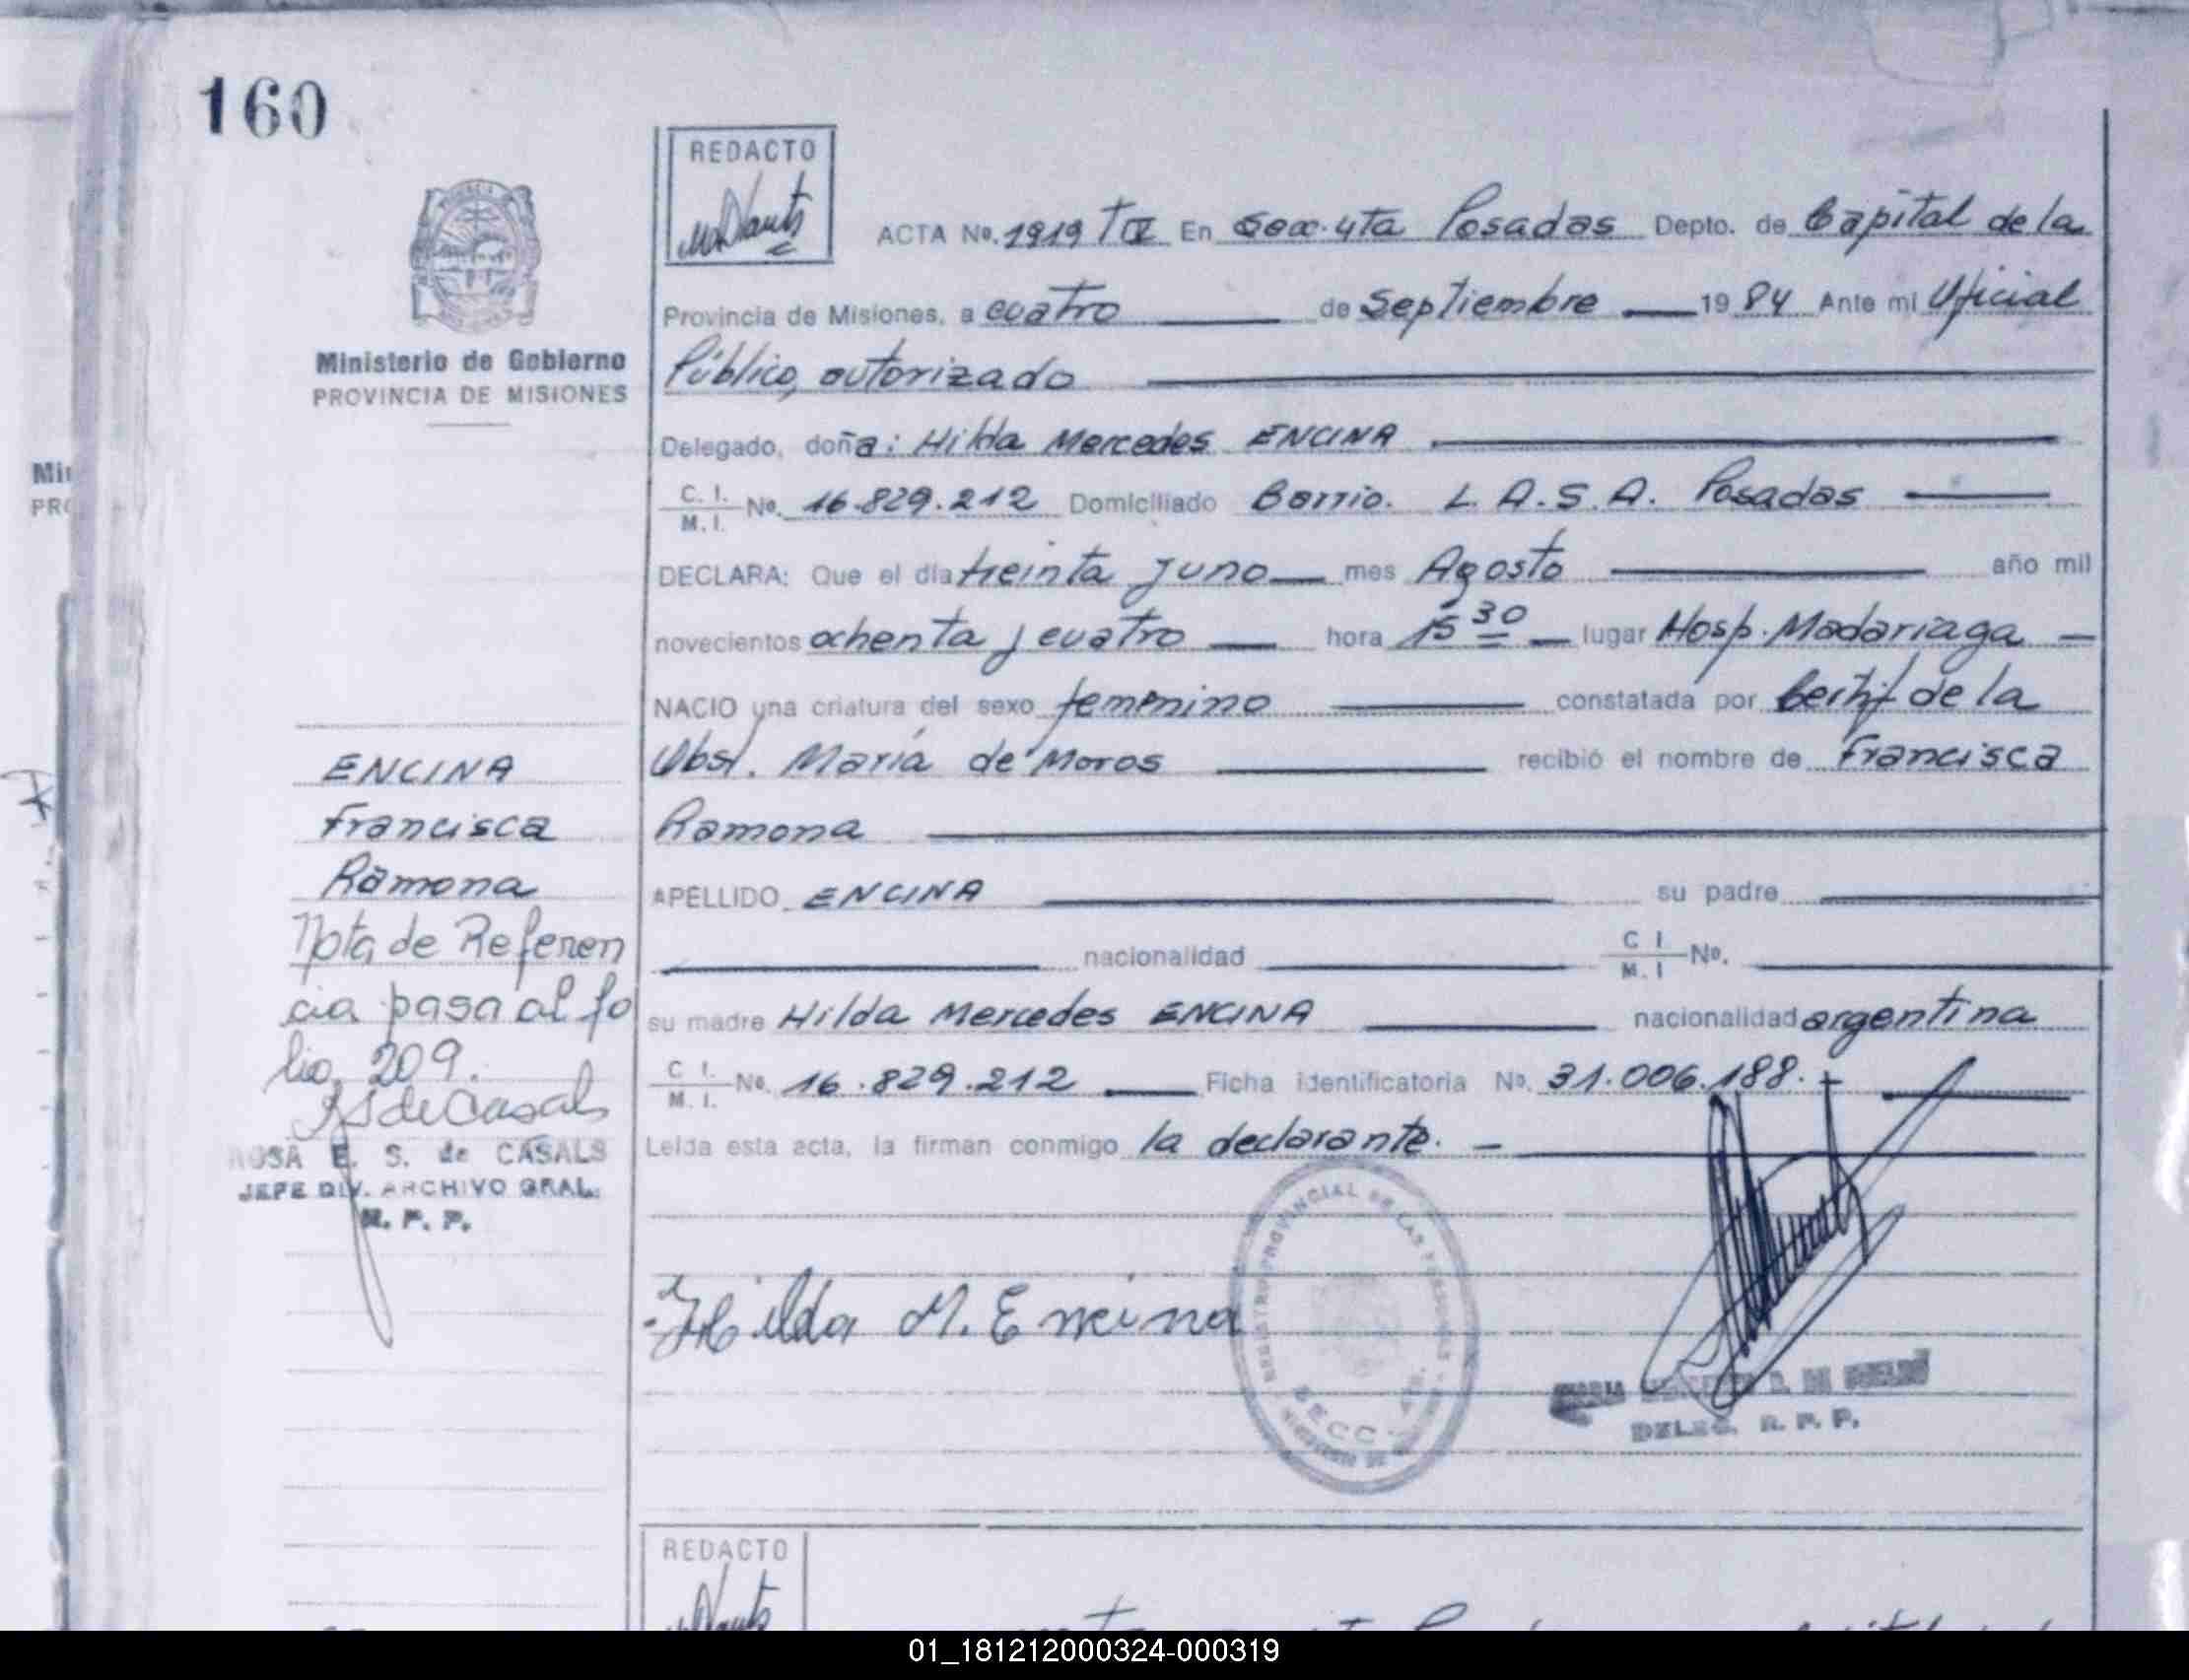 160
REDACTO
ACTA No. 1919 T IV En Secc. 4ta Posadas Depto. de Capital de la
Provincia de Misiones, a cuatro de Septiembre 1984 Ante mi Oficial
Ministerio de Gobierno
PROVINCIA DE MISIONES
Público, autorizado
Delegado, doña: Hilda Mercedes ENCINA
C. I. / M. I. No. 16.829.212 Domiciliado Barrio. L.A.S.A. Posadas
DECLARA: Que el día treinta y uno mes Agosto año mil
novecientos ochenta y cuatro hora 15 30 lugar Hosp. Madariaga
NACIO una criatura del sexo femenino constatada por Certif de la
Obst. María de Moros recibió el nombre de Francisca
Ramona
APELLIDO ENCINA su padre
nacionalidad C I / M. I No.
su madre Hilda Mercedes ENCINA nacionalidad argentina
C I. / M. I. No. 16.829.212 Ficha identificatoria No. 31.006.188.-
Leida esta acta, la firman conmigo la declarante. -
ENCINA
Francisca
Ramona
Nota de Referen
cia pasa al fo
lio 209.
RS de Casals
ROSA E. S. de CASALS
JEFE DIV. ARCHIVO GRAL.
R. P. P.
Hilda M. Encina
REGISTRO PROVINCIAL DE LAS PERSONAS
SECC. 4TA.
DELEG. R. P. P.
REDACTO
Min
PRO
01_181212000324-000319